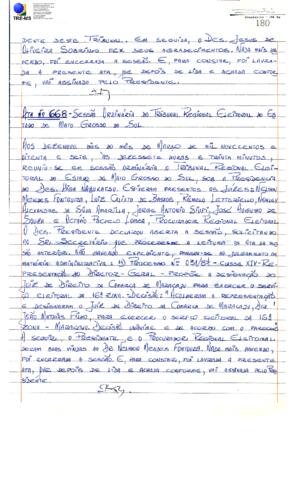 TRE-MS
180
DESTE DESTE TRIBUNAL. EM SEGUIDA, O DES. JESUS DE
OLIVEIRA SOBRINHO FEZ SEUS AGRADECIMENTOS. NADA MAIS HA
VENDO, FOI ENCERRADA A SESSÃO E, PARA CONSTAR, FOI LAVRA
DA A PRESENTE ATA, QUE DEPOIS DE LIDA E ACHADA CONFOR
ME, VAI ASSINADA PELO PRESIDENTE.
ATA Nº 668 - SESSÃO ORDINÁRIA DO TRIBUNAL REGIONAL ELEITORAL DO ES
TADO DE MATO GROSSO DO SUL.
AOS DEZENOVE DIAS DO MÊS DE MARÇO DE MIL NOVECENTOS E
OITENTA E SETE, ÀS DEZESSETE HORAS E TRINTA MINUTOS,
REUNIU-SE EM SESSÃO ORDINÁRIA O TRIBUNAL REGIONAL ELEI-
TORAL DO ESTADO DE MATO GROSSO DO SUL, SOB A PRESIDÊNCIA
DO DES. HIGA NABUKATSU. ESTIVERAM PRESENTES OS JUÍZES: NELSON
MENDES FONTOURA, LUIZ CALIXTO DE BASTOS, RÊMOLO LETTERIELLO,
ALEXANDRE DA SILVA, JORGE ANTONIO SIUFI, JOSÉ AUGUSTO DE
SOUZA E PACHECO, PROCURADOR REGIONAL ELEITORAL.
O DES. PRESIDENTE DECLAROU ABERTA A SESSÃO, SOLICITANDO
DO SR. SECRETÁRIO QUE PROCEDESSE A LEITURA DA ATA DA SES
SÃO ANTERIOR. NÃO HAVENDO EXPEDIENTE, PASSOU-SE AO JULGAMENTO DA
MATÉRIA ADMINISTRATIVA: 1) PROCESSO Nº 031/87 - CLASSE XIX - RE-
PRESENTAÇÃO DO DIRETOR-GERAL - PROPÕE A DESIGNAÇÃO DO
JUIZ DE DIREITO DA COMARCA DE MARACAJU PARA EXERCER O SERVI
ÇO ELEITORAL DA 16ª ZONA. DECISÃO: "ACOLHERAM A REPRESENTAÇÃO
E DESIGNARAM O JUIZ DE DIREITO DA COMARCA DE MARACAJU, DR.
JOÃO BATISTA, PARA EXERCER O SERVIÇO ELEITORAL DA 16ª
ZONA - MARACAJU. DECISÃO UNÂNIME E DE ACORDO COM O PARECER.
A SEGUIR, O PRESIDENTE E O PROCURADOR REGIONAL ELEITORAL
DERAM BOAS VINDAS AO DR. NELSON MENDES FONTOURA. NADA MAIS HAVENDO,
FOI ENCERRADA A SESSÃO E, PARA CONSTAR, FOI LAVRADA A PRESENTE
ATA, QUE DEPOIS DE LIDA E ACHADA CONFORME, VAI ASSINADA PELO PRE
SIDENTE.